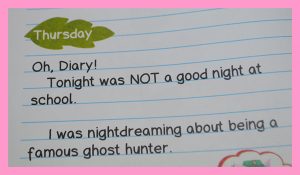 Thursday
Oh, Diary!
Tonight was NOT a good night at
school.
I was nightdreaming about being a
famous ghost hunter.